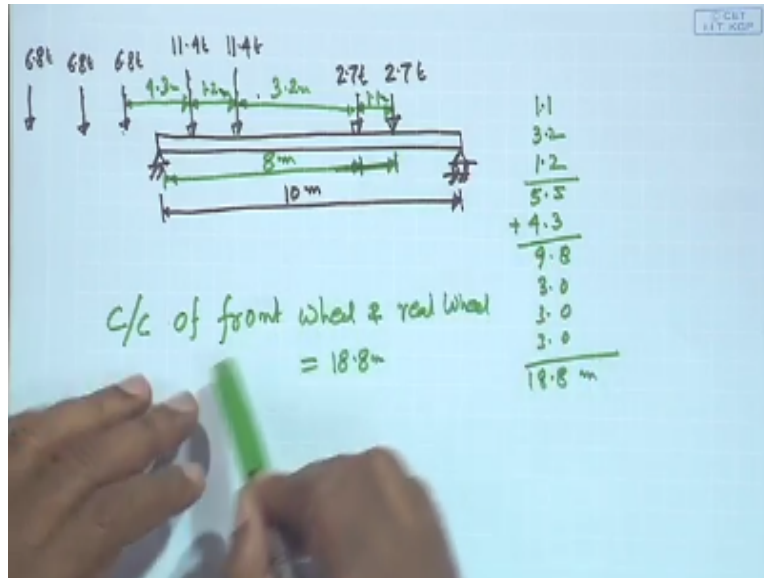 © CET
I.I.T. KGP
6.8t 6.8t 6.8t 11.4t 11.4t 2.7t 2.7t
4.3m 1.2m 3.2m 1.1m
8m
10m
1.1
3.2
1.2
5.5
+ 4.3
9.8
3.0
3.0
3.0
18.8 m
C/C of front wheel & real wheel
= 18.8m